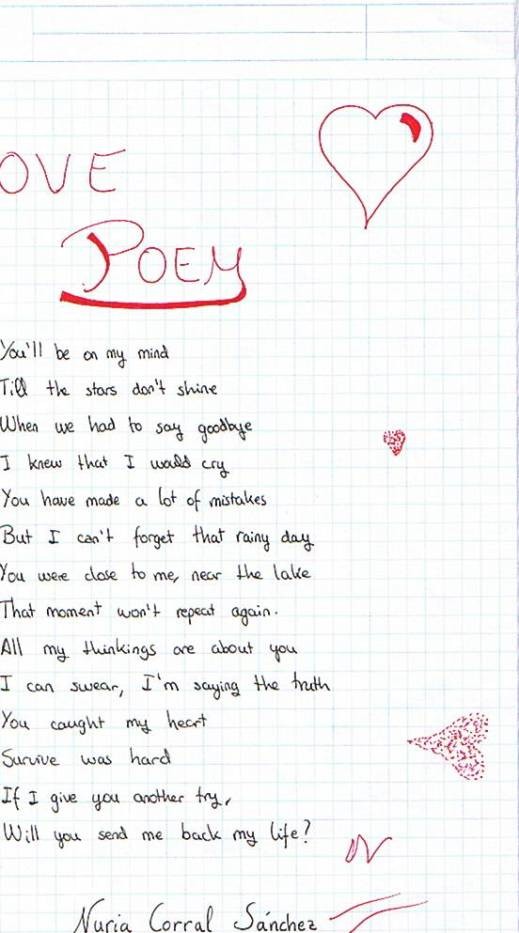 OVE
POEM
You'll be on my mind
Till the stars don't shine
When we had to say goodbye
I knew that I would cry
You have made a lot of mistakes
But I can't forget that rainy day
You were close to me, near the lake
That moment won't repeat again.
All my thinkings are about you
I can swear, I'm saying the truth
You caught my heart
Survive was hard
If I give you another try,
Will you send me back my life?
Nuria Corral Sánchez